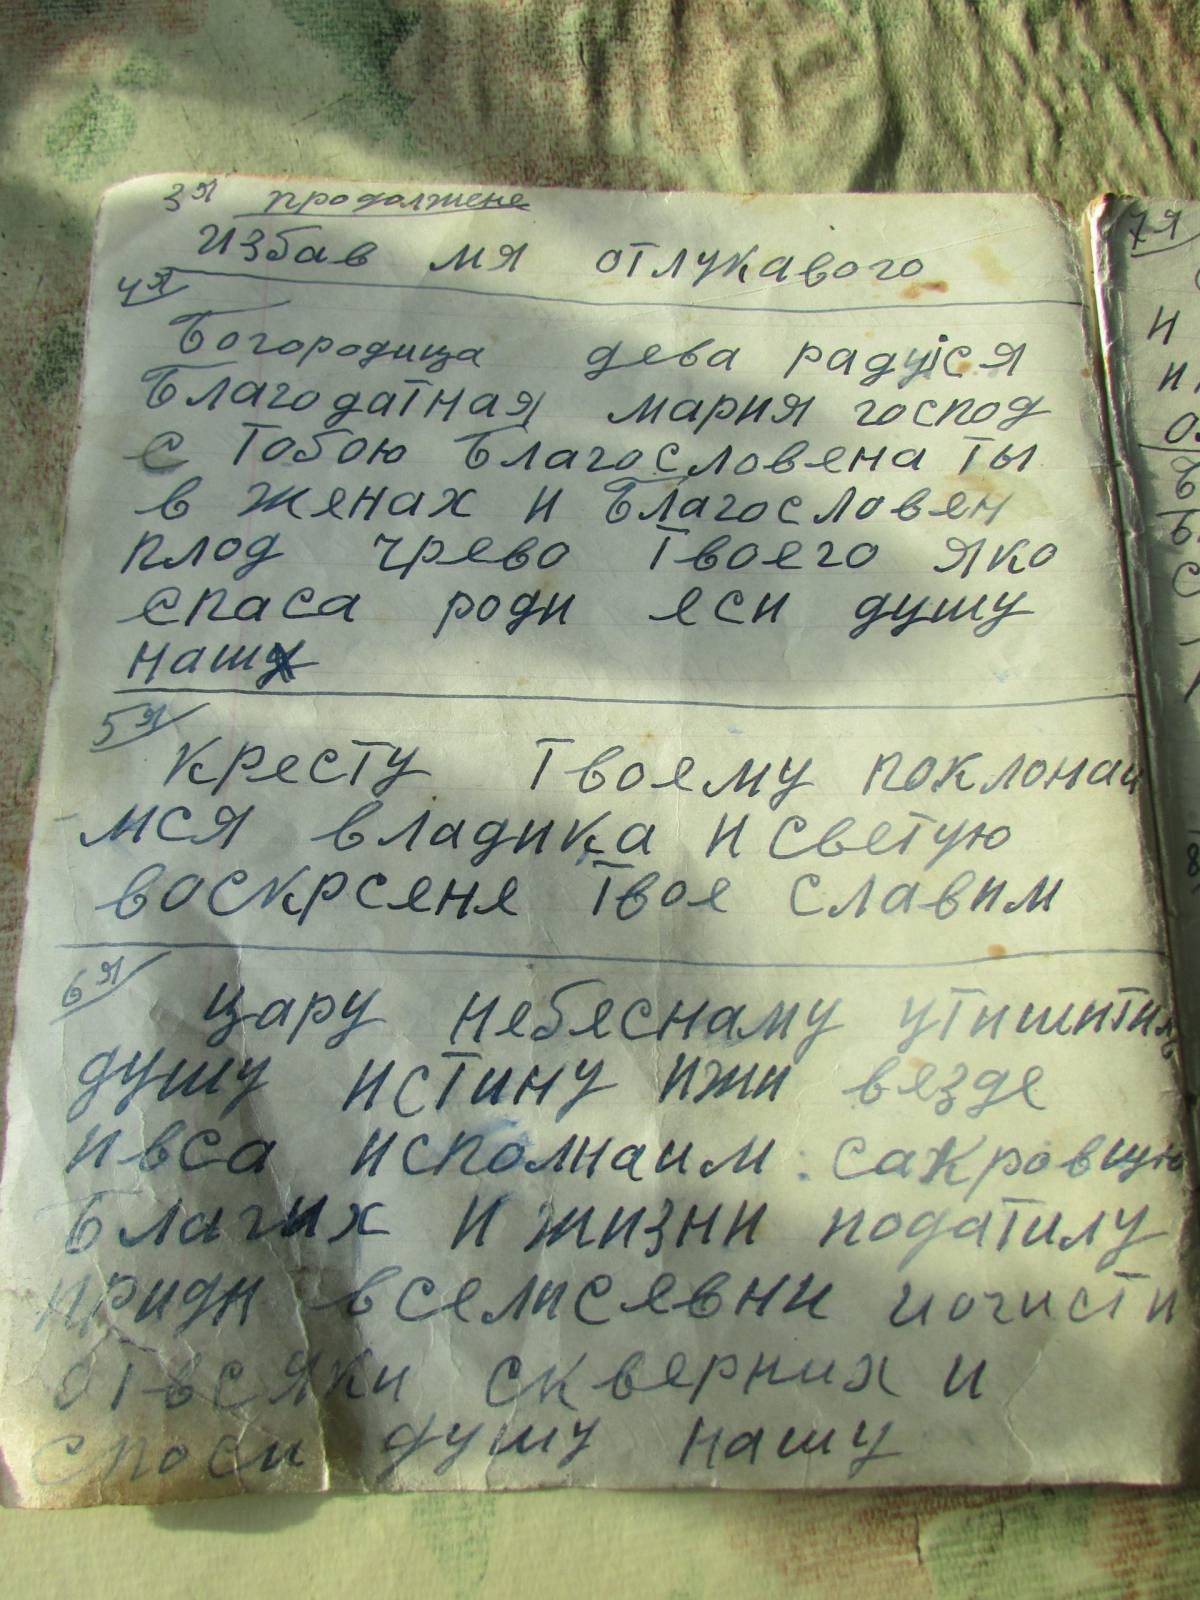 3я продолжене
избав мя отлукавого
4я
Богородица дева радуіся
Благодатная мария господ
с тобою Благословена ты
в женах и Благословен
плод чрево твоего яко
спаса роди еси душу
нашу
5я
кресту твоему поклонаи
мся владика и светую
воскрсене твое славим
6я
цару небеснаму утишитил
душу истину ижи везде
ивса исполнаим сакровщю
Благих и жизни податилу
приди вселисевни иочисти
отвсяки скверних и
споси душу нашу
7я